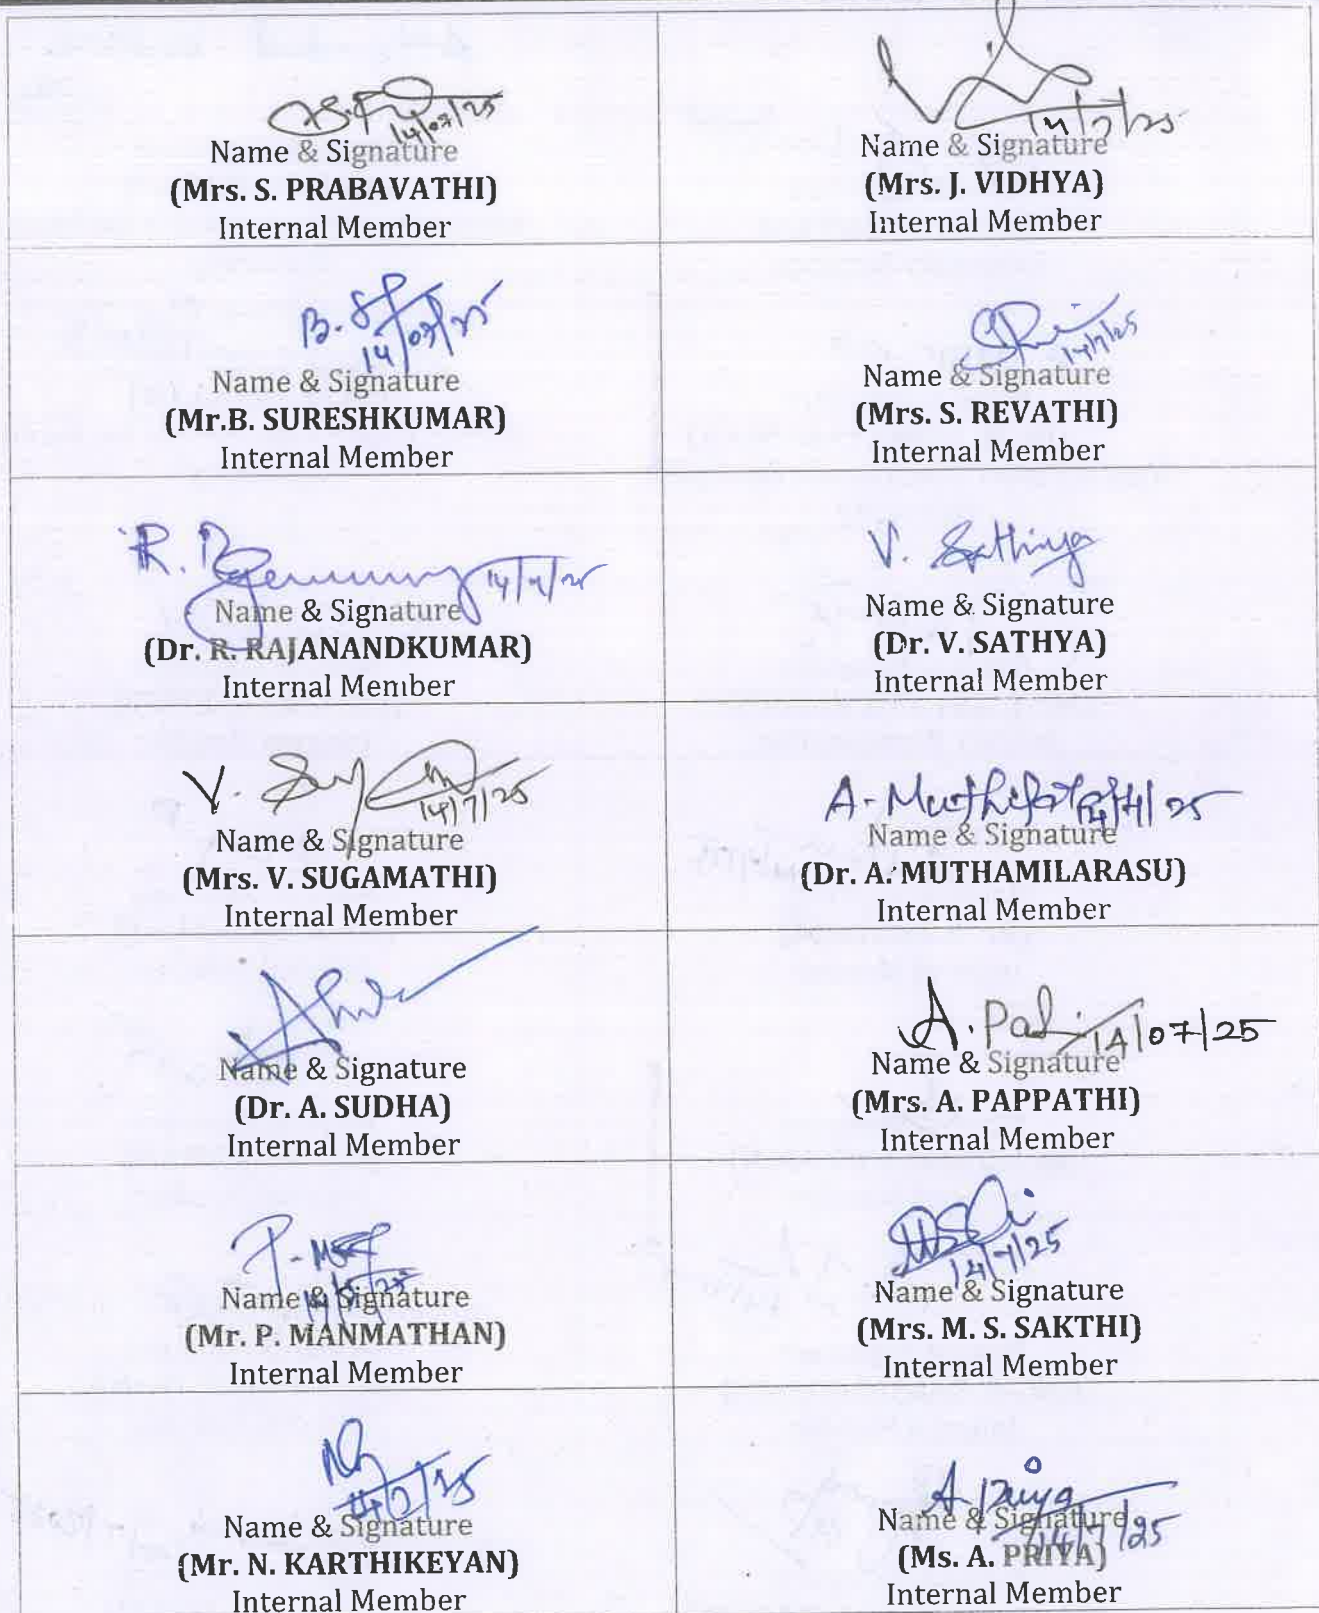 14/07/25
Name & Signature
(Mrs. S. PRABAVATHI)
Internal Member
14/7/25
Name & Signature
(Mrs. J. VIDHYA)
Internal Member
B. 
14/07/25
Name & Signature
(Mr.B. SURESHKUMAR)
Internal Member
14/7/25
Name & Signature
(Mrs. S. REVATHI)
Internal Member
R. 14/7/25
Name & Signature
(Dr. R. RAJANANDKUMAR)
Internal Member
V. Sathiya
Name & Signature
(Dr. V. SATHYA)
Internal Member
V. 
14/7/25
Name & Signature
(Mrs. V. SUGAMATHI)
Internal Member
A. 14/7/25
Name & Signature
(Dr. A. MUTHAMILARASU)
Internal Member
Name & Signature
(Dr. A. SUDHA)
Internal Member
A. 14/07/25
Name & Signature
(Mrs. A. PAPPATHI)
Internal Member
P. 
Name & Signature
(Mr. P. MANMATHAN)
Internal Member
14/7/25
Name & Signature
(Mrs. M. S. SAKTHI)
Internal Member
14/7/25
Name & Signature
(Mr. N. KARTHIKEYAN)
Internal Member
A. Priya
Name & Signature
14/7/25
(Ms. A. PRIYA)
Internal Member